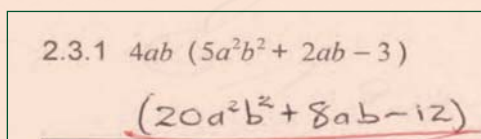 2.3.1 4ab (5a²b² + 2ab – 3)
(20a²b² + 8ab – 12)